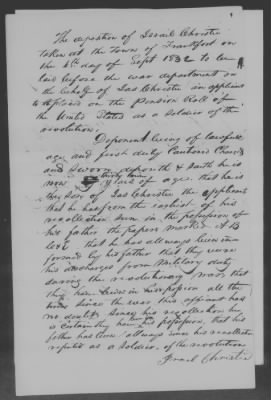 The deposition of Israel Christie
taken at the Town of Frankfort on
the 6th day of Sept 1832 to be
laid before the war department on
the behalf of Jas Christie an applicant
to be placed on the Pension Roll of
the United States as a Soldier of the
revolution.
Deponent being of lawful
age and first duly Cautioned
and Sworn deposeth & saith he is
now years of age that he is
the Son of Jas Christie the applicant
that he has from the earliest of his
recollection seen in the possession of
his father the papers marked A B
that he has allways been in
formed by his father that they were
his discharges from Military duty
during the revolutionary war, that
they have been in his possession all the
time since the war this affiant has
no doubt, since his recollection he
is certain they in his possession, that his
father has been always since his recollection
reputed as a Soldier of the revolution
Israel Christie